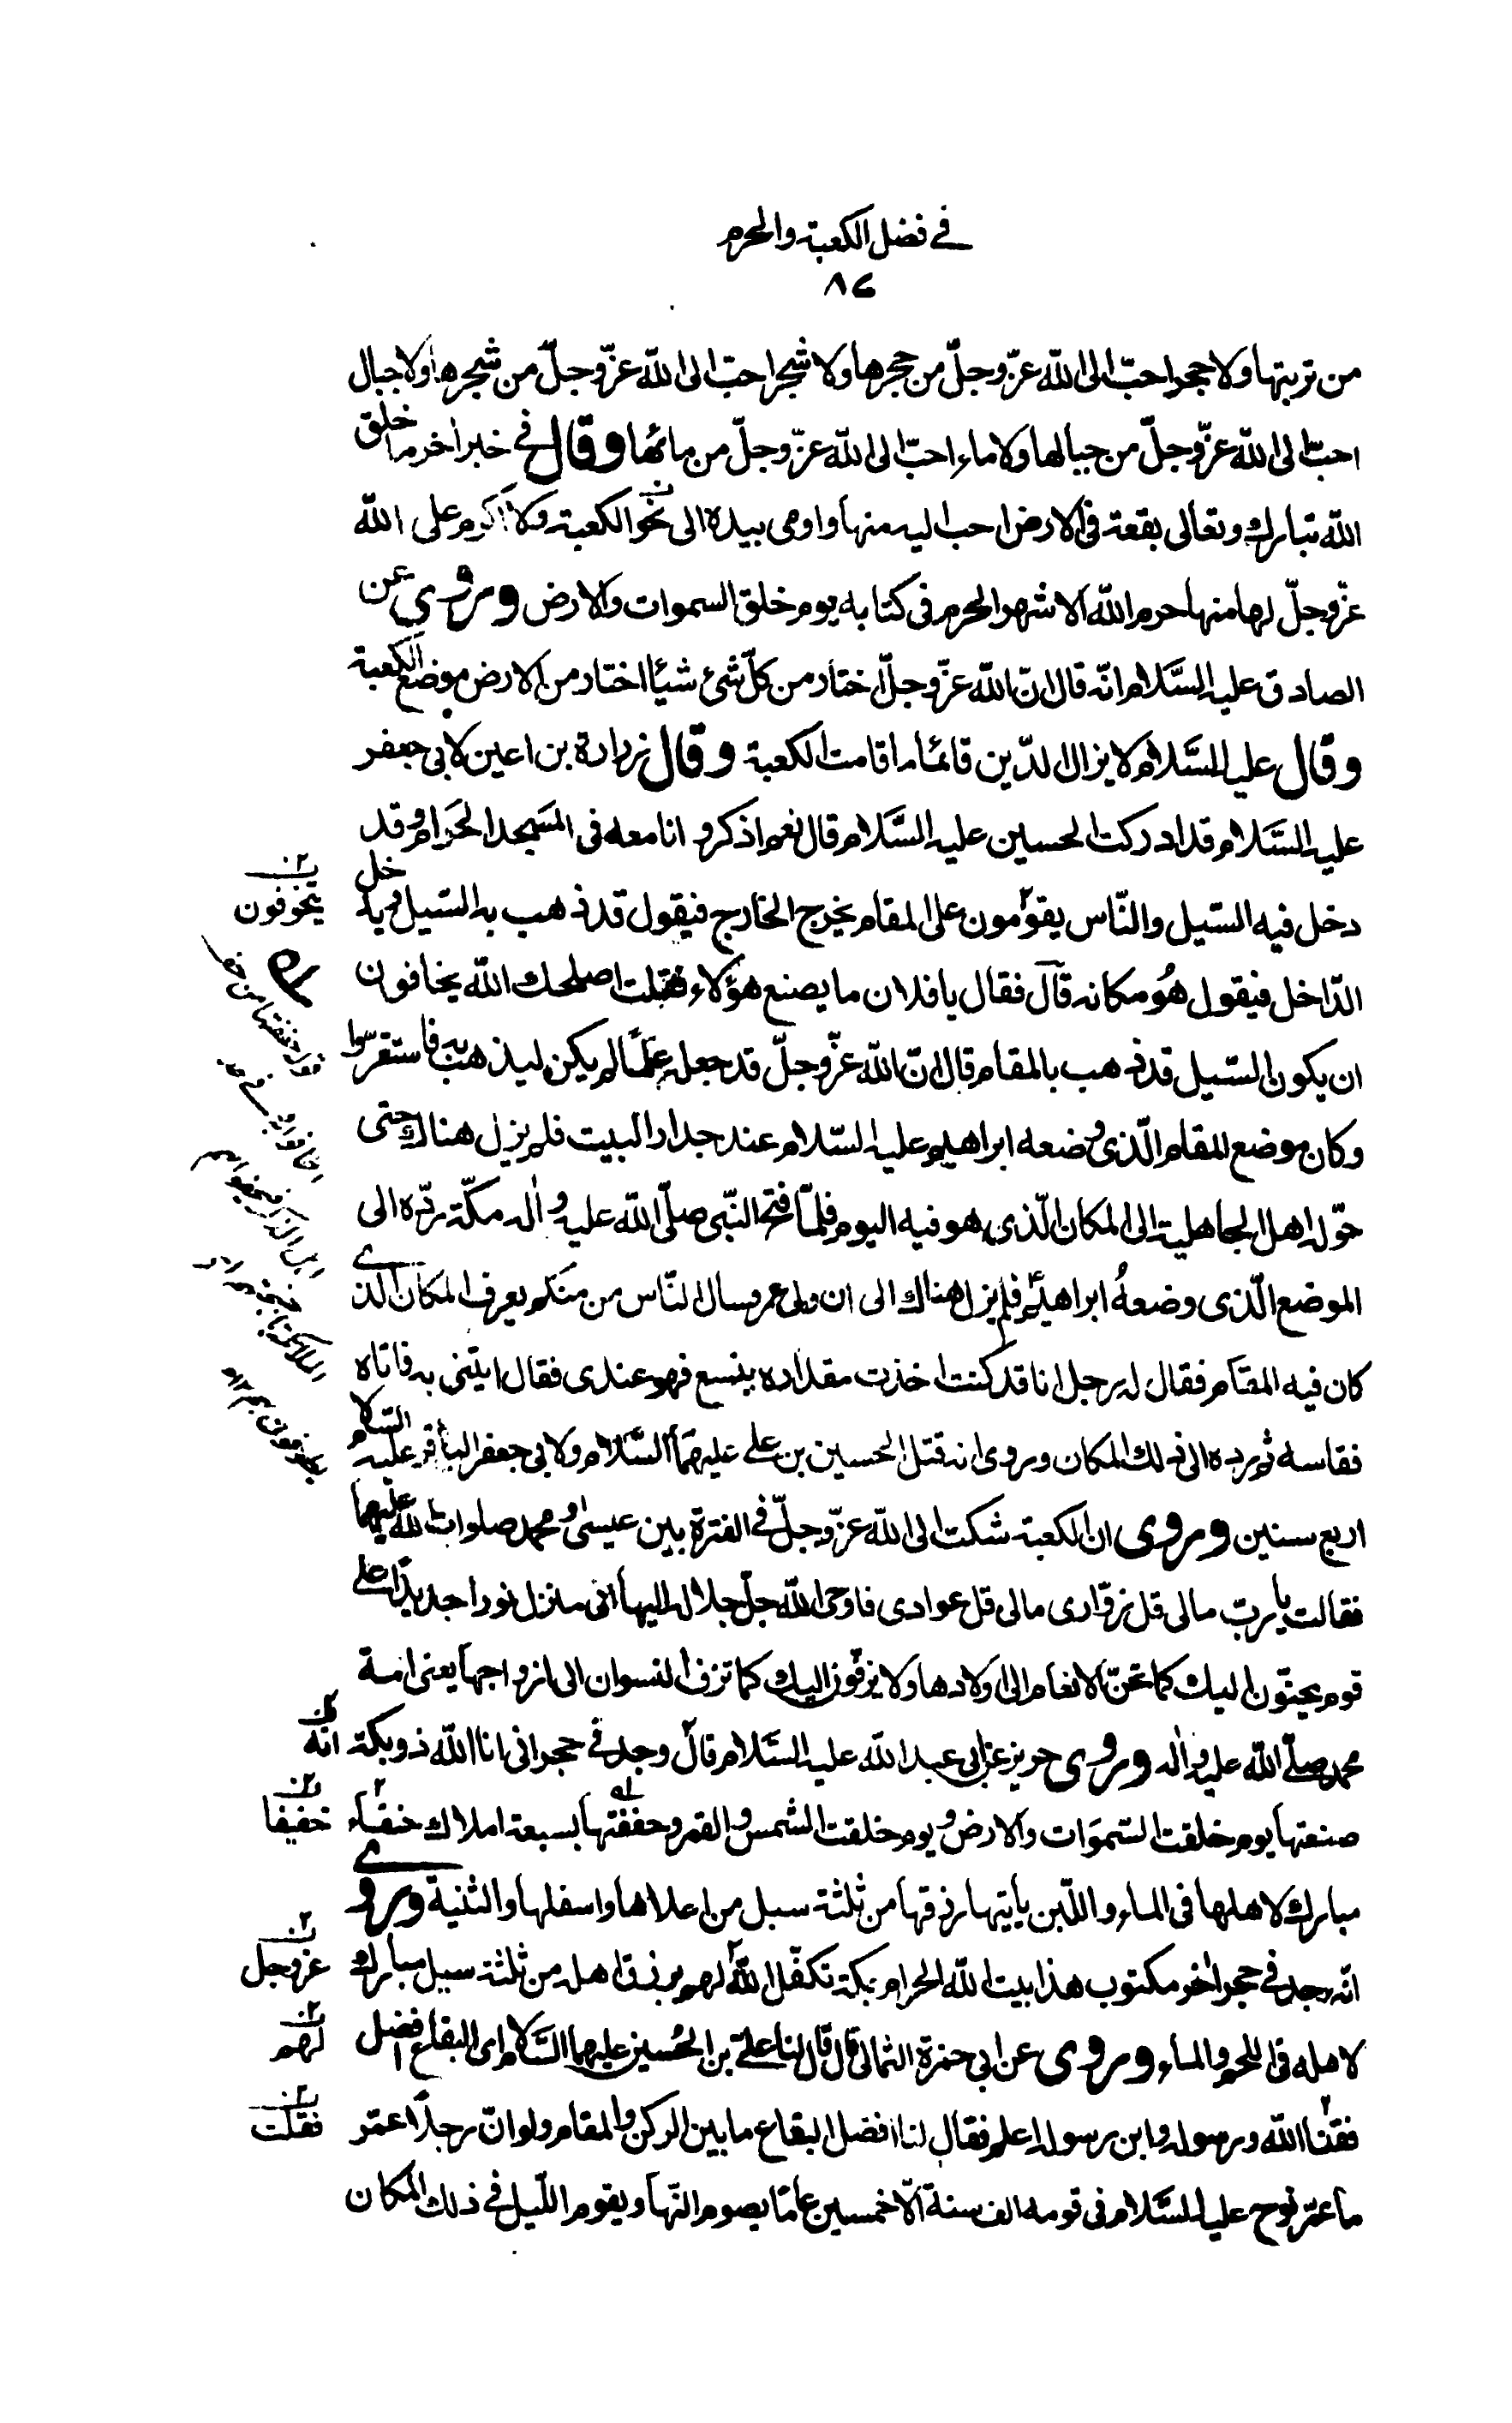 في فضل الكعبة والحرم
٨٧
من تربتها ولا حجرا احبّ الى الله عزّ وجلّ من حجرها ولا شجرا احبّ الى الله عزّ وجلّ من شجرها ولا جبال
احبّ الى الله عزّ وجلّ من جبالها ولا ماء احبّ الى الله عزّ وجلّ من مائها وقال في خبر اخر ما خلق
الله تبارك وتعالى بقعة في الارض احب اليه منها واومى بيده الى نحو الكعبة ولا اكرم على الله
عزّ وجلّ لها منها حرم الله الاشهر الحرم في كتابه يوم خلق السموات والارض وروى عن
الصادق عليه السَّلام انّه قال انّ الله عزّ وجلّ اختار من كلّ شئ شيئا اختار من الارض موضع الكعبة
وقال عليه السَّلام لا يزال الدّين قائما ما قامت الكعبة وقال زرارة بن اعين لابي جعفر
عليه السَّلام قد ادركت الحسين عليه السَّلام قال نعم اذكر وانا معه في المسجد الحرام وقد
دخل فيه السّيل والنّاس يقومون على المقام يخرج الخارج فيقول قد ذهب به السّيل ويدخل
يتخوفون
الدّاخل فيقول هُو مكانه قال فقال يا فلان ما يصنع هؤلاء فقلت اصلحك الله يخافون
ان يكون السّيل قد ذهب بالمقام قال انّ الله عزّ وجلّ قد جعله علما لم يكن ليذهب به فاستقرّوا
وكان موضع المقام الّذي وضعه ابراهيم عليه السّلام عند جدار البيت فلم يزل هناك حتى
حوّله اهل الجاهلية الى المكان الّذي هو فيه اليوم فلمّا فتح النّبي صلّى الله عليه واٰله مكّة ردّه الى
الموضع الّذي وضعهُ ابراهيم فلم يزل هناك الى ان ولى عمر فسال النّاس من منكم يعرف المكان الذي
كان فيه المقام فقال له رجل انا قد كنت اخذت مقداره بنسع فهو عندى فقال ايتني به فاتاه
فقاسه ثم رده الى ذلك المكان وروى انه قتل الحسين بن علي عليهما السَّلام ولابي جعفر الباقر عليه السّلام
اربع سنين وروى ان الكعبة شكت الى الله عزّ وجلّ في الفترة بين عيسى ومحمد صلوات الله عليهما
فقالت يا ربّ مالى قل زوّارى مالى قل عوادى فاوحى الله جلّ جلاله اليها انى منزل نورا جديدا على
قوم يحنّون اليك كما تحنّ الانعام الى اولادها ولا يزفون اليك كما تزف النسوان الى ازواجها يعنى امة
محمد صلّى الله عليه واٰله وروى حريز عن ابي عبد الله عليه السَّلام قال وجد في حجر اني انا الله ذو بكة
انّه
صنعتها يوم خلقت السّموَات والارض ويوم خلقت الشمس والقمر وحففتها بسبعة املاك حنفاء
حفيفا
مبارك لاهلها في الماء واللّبن ياتيها رزقها من ثلثة سبل من اعلاها واسفلها والثنية وروى
انّه وجد في حجر اخر مكتوب هذا بيت الله الحرام بمكة تكفّل الله لهم برزق اهله من ثلثة سبيل مبارك
عزوجل
لاهله في اللحم والماء وروى عن ابي حمزة الثمالى قال قال لنا على بن الحُسين عليهما السَّلام اى البقاع افضل
لهم
فقلنا الله ورسوله وابن رسوله اعلم فقال لنا افضل البقاع ما بين الركن والمقام ولو انّ رجلا عمّر
فقلت
ما عمّر نوح عليه السَّلام في قومه الف سنة الّا خمسين عاما يصوم النّهار ويقوم اللّيل في ذلك المكان